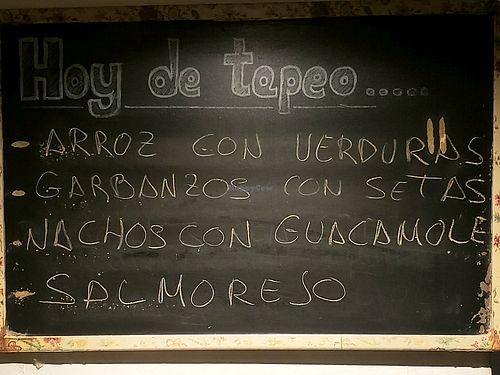 Hoy de tapeo.....
- ARROZ CON VERDURAS
- GARBANZOS CON SETAS
- NACHOS CON GUACAMOLE
- SALMOREJO